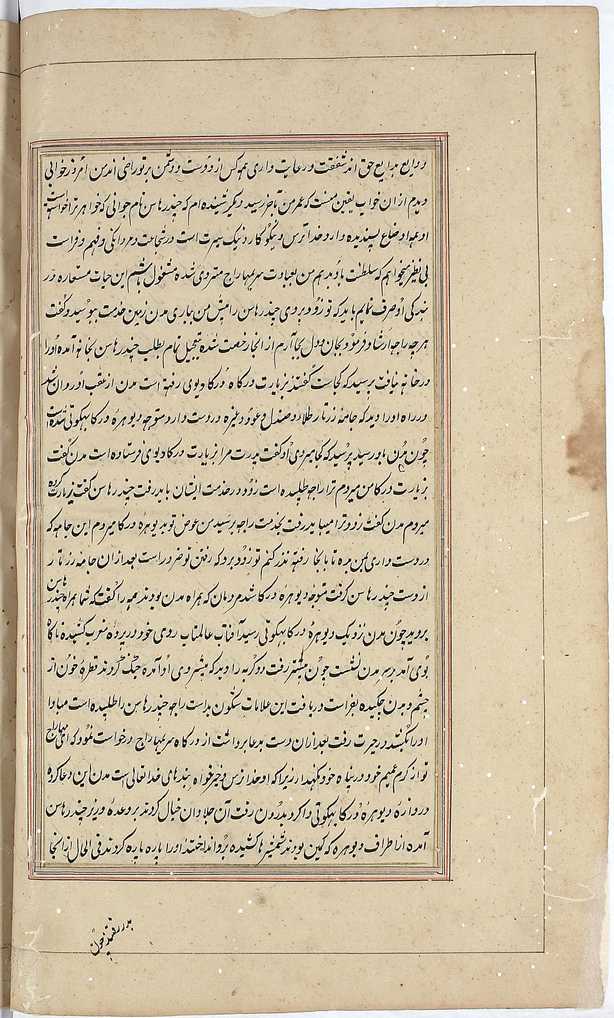 ودایع بدایع حق اند شفقت و رعایت داری همه کس از دوست و دشمن بر تو راضی اند من امروز خوابی
دیدم از ان خواب یقین منست که عمر من باخر رسید و دیگر شنیده ام که چندرهاس نام جوانی که خواهر ترا خواسته است
او عجب اوضاع پسندیده دارد و خدا ترس و نیکوکار و نیک سیرت است در شجاعت و مردانگی و فهم و فراست
بی نظیر میخواهم که سلطنت باو بدهم من بعبادت سریمهاراج متردی شده مشغول باشم این حیات مستعاره در
بندگی او صرف نمایم باید که تو زود بروی چندرهاس را پیش من بیاری مدن زمین خدمت ببوسید و گفت
هر چه راجه ارشاد فرمود بجان و دل بجا آرم از انجا رخصت شده بتعجیل تمام بطلب چندرهاس بخانه آمده او را
در خانه نیافت پرسید که کجاست گفتند بزیارت درگاه درگا دیوی رفته است مدن از عقب او روان شد
در راه او را دید که جامه زرتار طلا و صندل و عود و غیره در دست دارد متوجه دیوهره درگا بهگوتی شده است
چون مدن باو رسید پرسید که کجا میروی او گفت پدرت مرا بزیارت درگا دیوی فرستاده است مدن گفت
بزیارت درگا من میروم ترا راجه طلبیده است زود در خدمت ایشان باید رفت چندرهاس گفت زیارت کرده
میروم مدن گفت زودتر میباید رفت بخدمت راجه برس من عوض تو بدیوهره درگا میروم این جامه که
در دست داری بمن بده تا بانجا رفته نذر کنم تو زود برو که رفتن تو ضرور است بعد از ان جامه زرتار
از دست چندرهاس گرفت متوجه دیوهره درگا شد مردمان که همراه مدن بودند همه را گفت که شما همراه چندرهاس
بروید چون مدن نزدیک دیوهره درگا بهگوتی رسید آفتاب عالمتاب روی خود در پرده مغرب کشیده ناگاه
بوی آمد بر سر مدن نشست چون پیشتر رفت دو گربه را دید که پیش روی او آمده جنگ کردند قطره خون از
چشم و بدن چکیده بفراست دریافت این علامات شگون بد است راجه چندرهاس را طلبیده است مبادا
او را بکشند در حیرت رفت بعد از ان دست بدعا برداشت از درگاه سریمهاراج درخواست نمود که الهی مهاراج
تو از کرم عمیم خود در پناه خود نگهدار زیرا که او خدا ترس و خیرخواه بندهای خدا تعالی است مدن این دعا کرده
دروازه دیوهره درگا بهگوتی وا کرد بدرون رفت آن جلادان خیال کردند بر وعده وزیر چندرهاس
آمده از اطراف دیوهره که کمین بودند شمشیرها کشیده برو انداختند او را پاره پاره کردند فی الحال از انجا
بدر رفتند چون